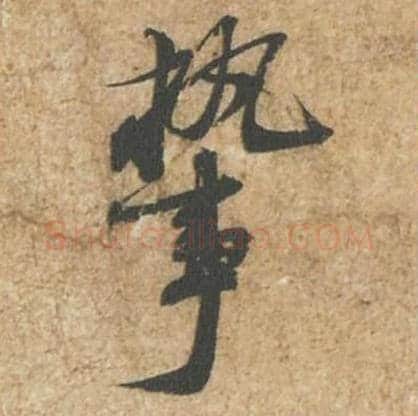 执事
ShufaZiliao.COM